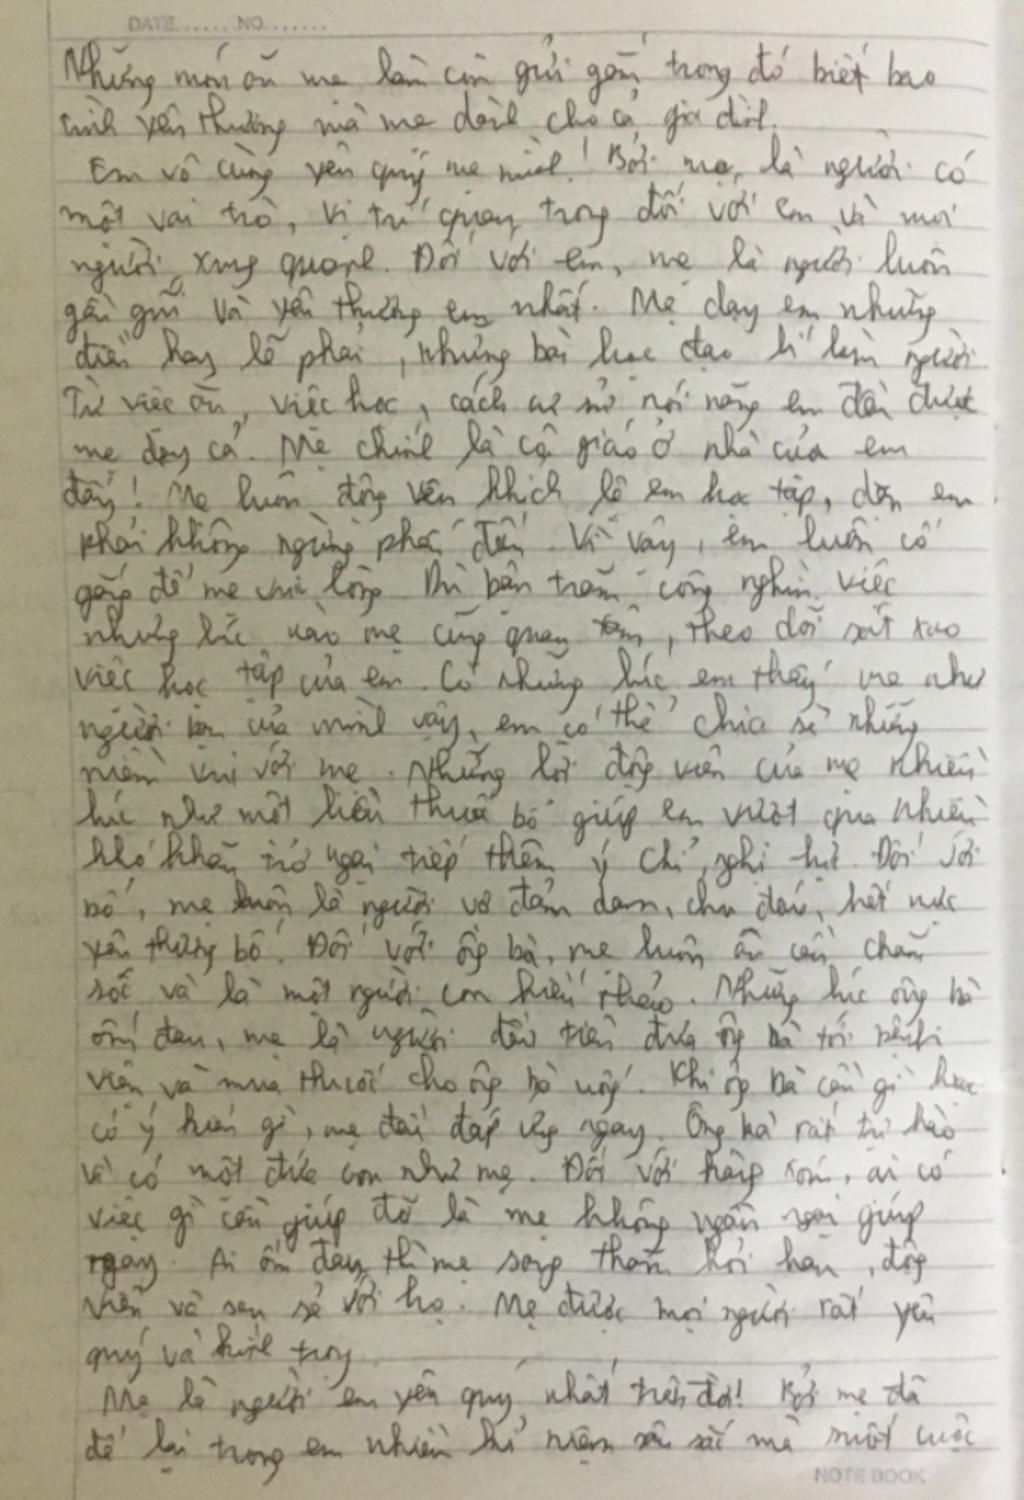 DATE...... NO.......
Những món ăn mẹ làm còn gửi gắm trong đó biết bao
tình yêu thương mà mẹ dành cho cả gia đình.
Em vô cùng yêu quý mẹ mình! Bởi mẹ, là người có
một vai trò, vị trí quan trọng đối với em và mọi
người xung quanh. Đối với em, mẹ là người luôn
gần gũi và yêu thương em nhất. Mẹ dạy em những
điều hay lẽ phải, những bài học đạo lí làm người
Từ việc ăn, việc học, cách cư sử nói năng em đều được
mẹ dạy cả. Mẹ chính là cô giáo ở nhà của em
đấy! Mẹ luôn động viên khích lệ em học tập, dặn em
phải không ngừng phấn đấu. Vì vậy, em luôn cố
gắng để mẹ vui lòng Dù bận trăm công nghìn việc
nhưng lúc nào mẹ cũng quan tâm, theo dõi sát xao
việc học tập của em. Có những lúc em thấy mẹ như
người bạn của mình vậy, em có thể chia sẻ những
niềm vui với mẹ. Những lời động viên của mẹ nhiều
lúc như một liều thuốc bổ giúp em vượt qua nhiều
khó khăn trở ngại tiếp thêm ý chí, nghị lực. Đối với
bố, mẹ luôn là người vợ đảm đang, chu đáo, hết mực
yêu thương bố. Đối với ông bà, mẹ luôn ân cần chăm
sóc và là một người con hiếu thảo. Những lúc ông bà
ốm đau, mẹ là người đầu tiên đưa ông bà tới bệnh
viện và mua thuốc cho ông bà uống. Khi ông bà cần gì hay
có ý kiến gì, mẹ đều đáp ứng ngay. Ông bà rất tự hào
vì có một đứa con như mẹ. Đối với hàng xóm, ai có
việc gì cần giúp đỡ là mẹ không ngần ngại giúp
ngay. Ai ốm đau thì mẹ sang thăm hỏi han, động
viên và san sẻ với họ. Mẹ được mọi người rất yêu
quý và kính trọng
Mẹ là người em yêu quý nhất trên đời! Bởi mẹ đã
để lại trong em nhiều kỉ niệm sâu sắc mà suốt cuộc
NOTE BOOK